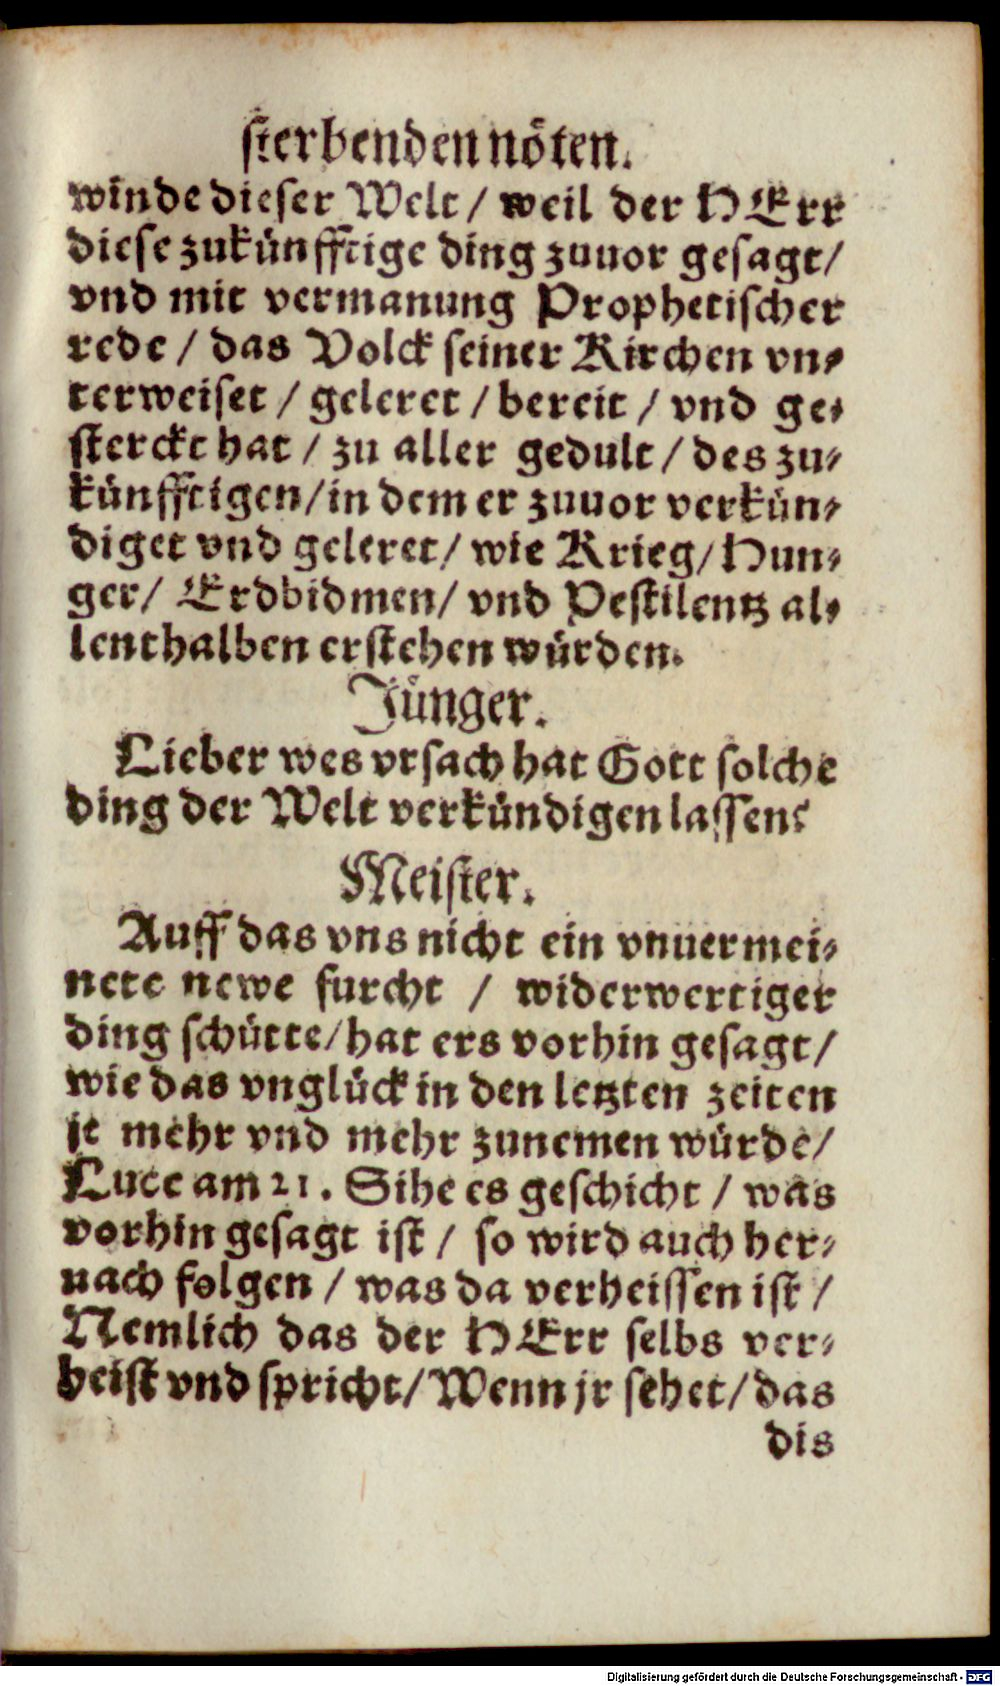 sterbenden nöten.
winde dieser Welt / weil der HErr
diese zukünfftige ding zuuor gesagt /
vnd mit vermanung Prophetischer
rede / das Volck seiner Kirchen vn⸗
terweiset / geleret / bereit / vnd ge⸗
sterckt hat / zu aller gedult / des zu⸗
künfftigen / in dem er zuuor verkün⸗
diget vnd geleret / wie Krieg / Hun⸗
ger / Erdbidmen / vnd Pestilentz al⸗
lenthalben erstehen würden.
Jünger.
Lieber wes vrsach hat Gott solche
ding der Welt verkündigen lassen?
Meister.
Auff das vns nicht ein vnuermei⸗
nete newe furcht / widerwertiger
ding schütte / hat ers vorhin gesagt /
wie das vnglück in den letzten zeiten
je mehr vnd mehr zunemen würde /
Luce am 21. Sihe es geschicht / was
vorhin gesagt ist / so wird auch her⸗
nach folgen / was da verheissen ist /
Nemlich das der HErr selbs ver⸗
heist vnd spricht / Wenn jr sehet / das
dis
Digitalisierung gefördert durch die Deutsche Forschungsgemeinschaft - DFG